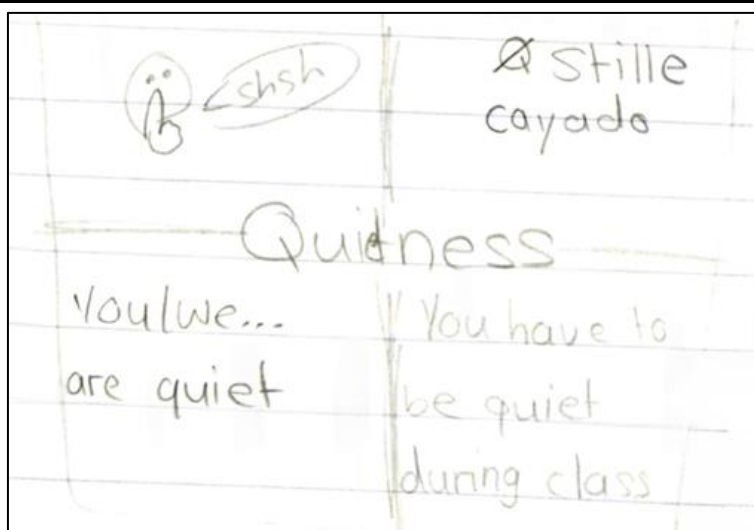 shsh
Stille
cayado
Quitness
You/we...
are quiet
You have to
be quiet
during class